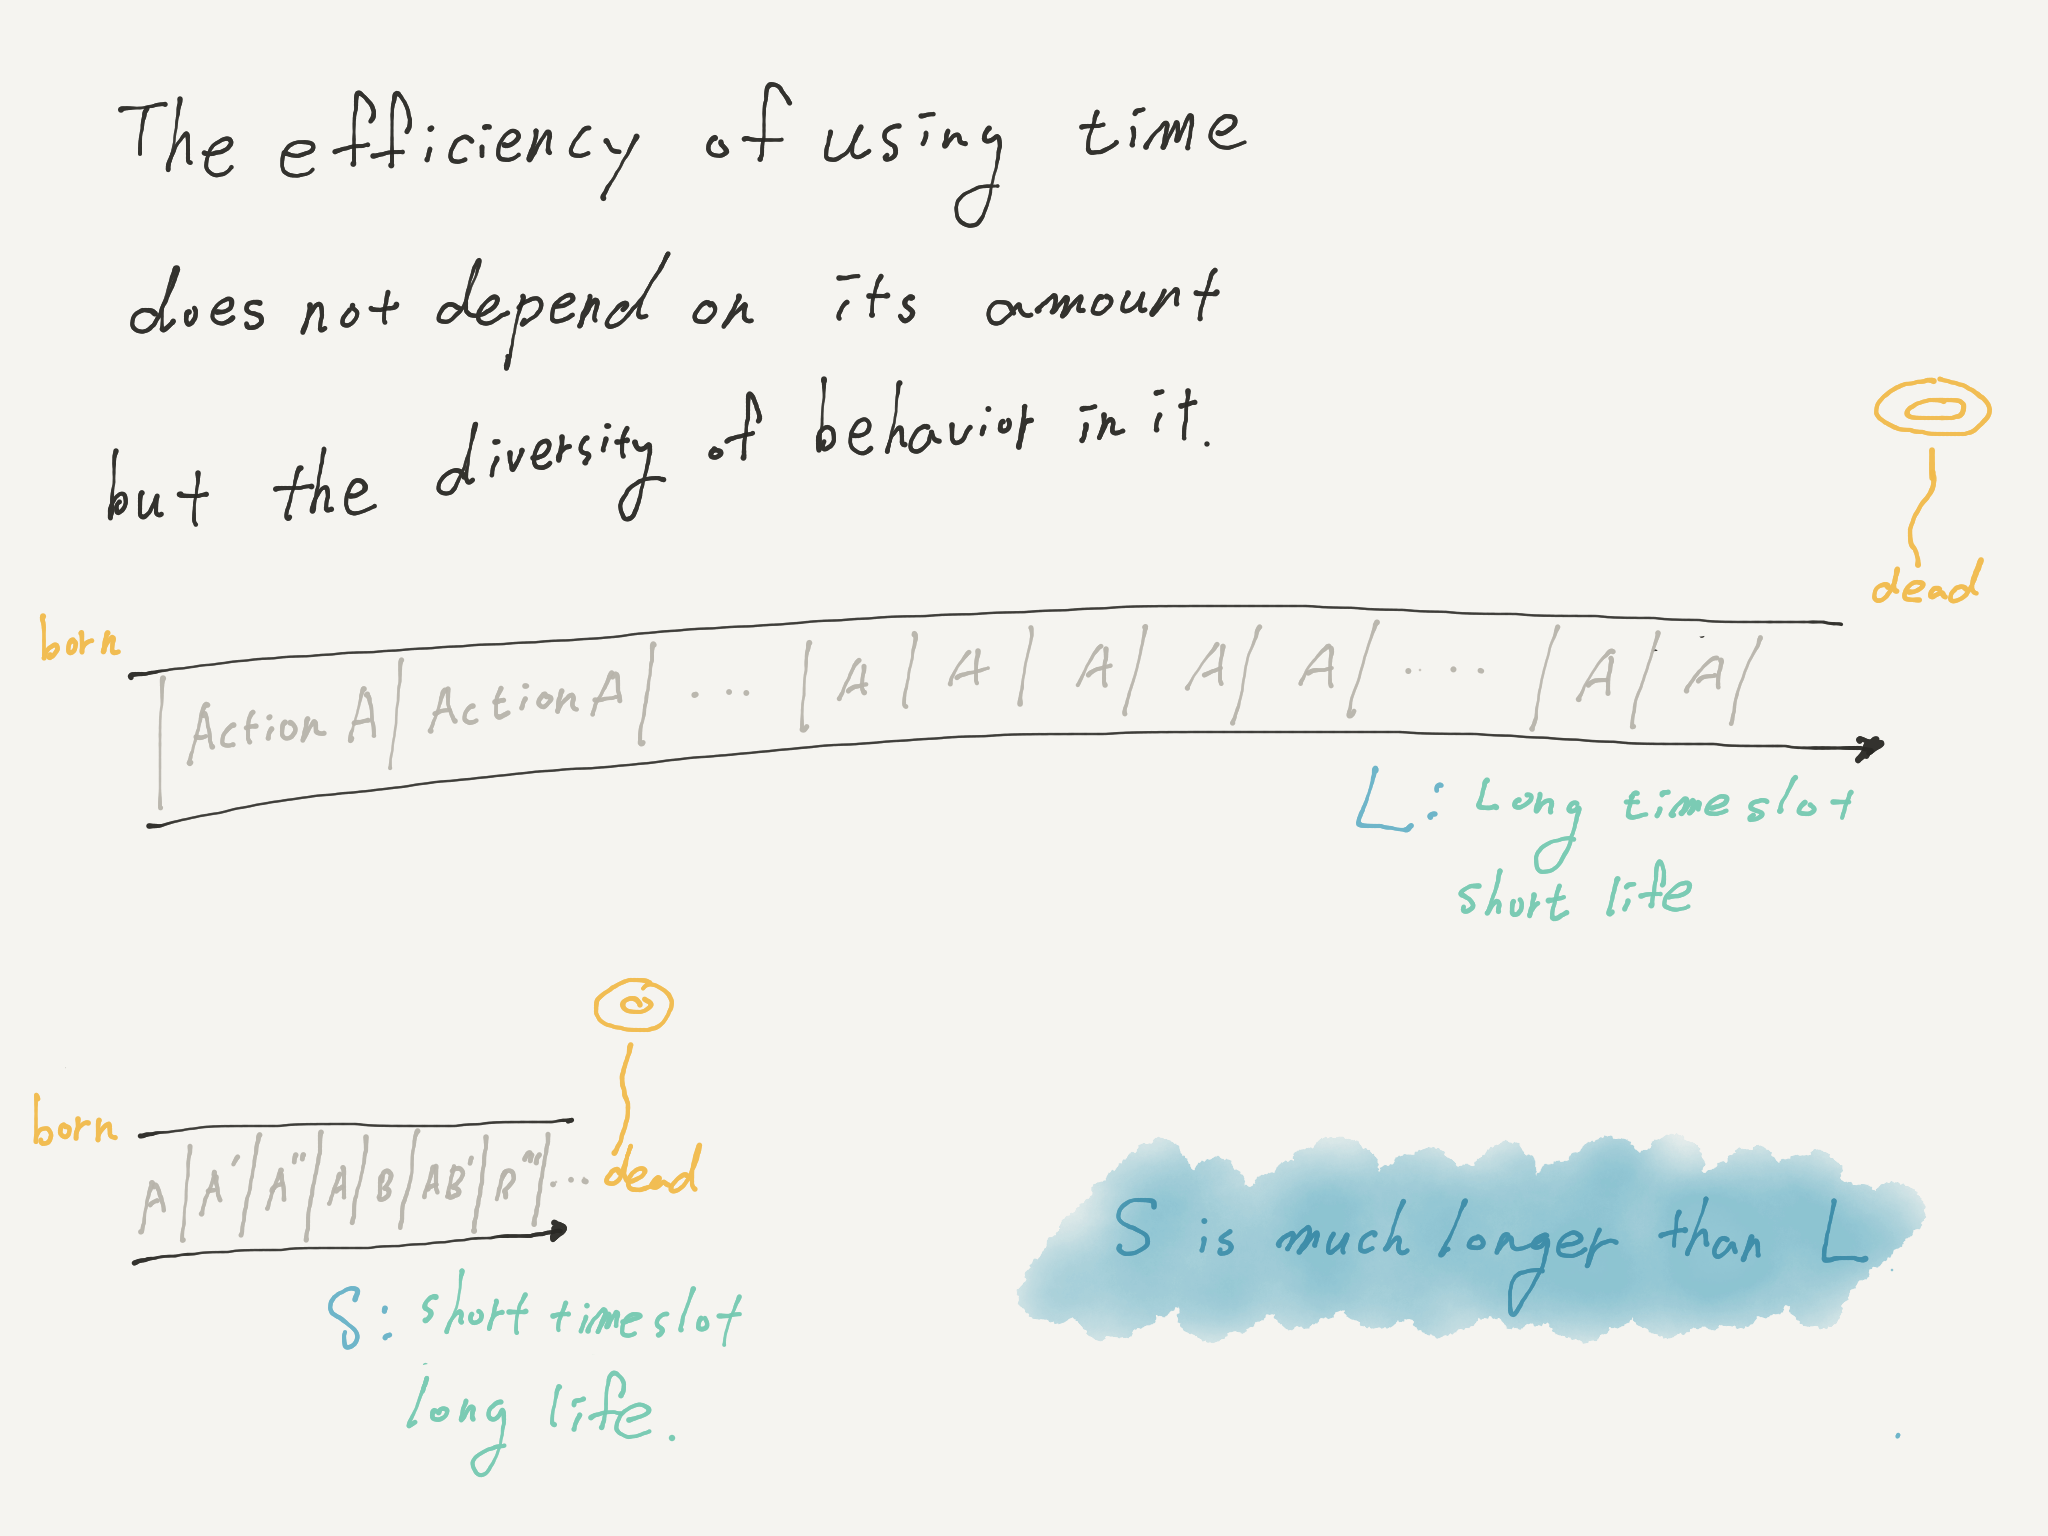 The efficiency of using time
does not depend on its amount
but the diversity of behavior in it.
dead
born
Action A Action A ... A A A A A .... A A
L: Long timeslot
short life
born
A A' A'' A B AB' ... dead
S: short timeslot
long life.
S is much longer than L